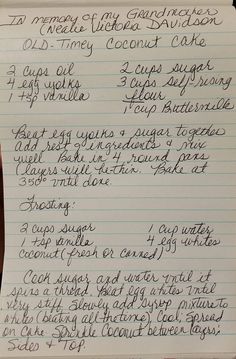 IN memory of my Grandmother
(Nealie Victoria Davidson
OLD-Timey Coconut Cake
2 cups oil 2 cups sugar
4 egg yorks 3 cups self-rising
1 tsp vanilla flour
1 cup Buttermilk
Beat egg yorks & sugar together
add rest of ingredients & mix
well. Bake in 4 round pans
(layers will be thin. Bake at
350° until done.
Frosting:
2 cups sugar 1 cup water
1 tsp vanilla 4 egg whites
coconut (fresh or canned)
Cook sugar and water until it
spins a thread. Beat egg whites until
very stiff. Slowly add syrup mixture to
whites (beating all the time). Cool, Spread
on Cake. Sprinkle Coconut between layers,
Sides & Top.